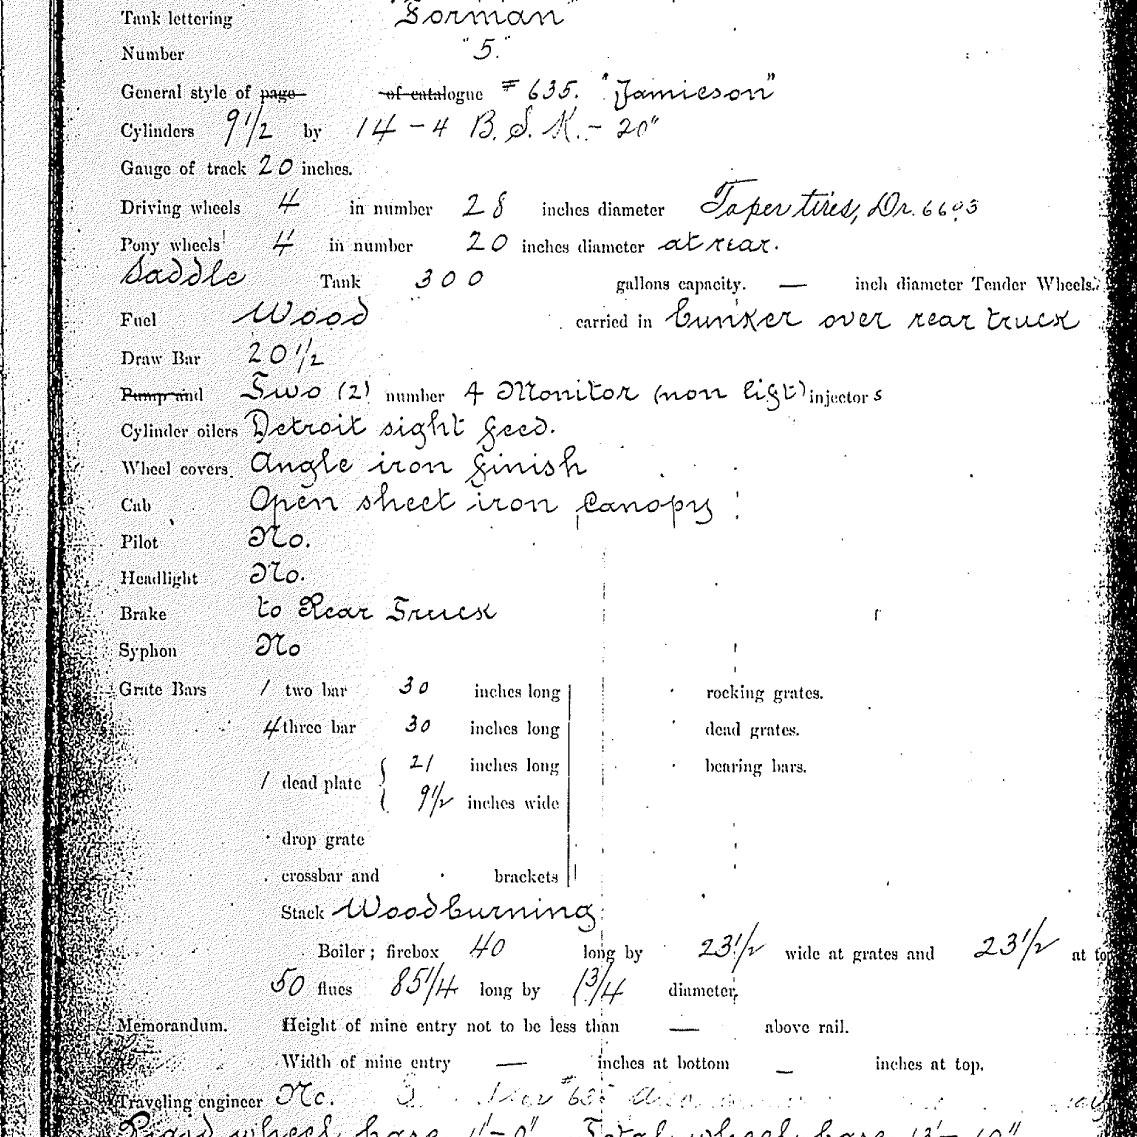 Tank lettering Gorman"
Number "5."
General style of page of catalogue # 635. "Jamieson"
Cylinders 9 1/2 by 14 - 4 B. S. K. - 20"
Gauge of track 20 inches.
Driving wheels 4 in number 28 inches diameter Taper tires, Dr. 6603
Pony wheels 4 in number 20 inches diameter at rear.
Saddle Tank 300 gallons capacity. — inch diameter Tender Wheels.
Fuel Wood carried in bunker over rear truck
Draw Bar 20 1/2
Pump and Two (2) number 4 Monitor (non ligt) injectors
Cylinder oilers Detroit sight feed.
Wheel covers. Angle iron finish
Cab Open sheet iron Canopy
Pilot No.
Headlight No.
Brake to Rear Truck
Syphon No
Grate Bars 1 two bar 30 inches long rocking grates.
4 three bar 30 inches long dead grates.
1 dead plate 21 inches long bearing bars.
9 1/2 inches wide
drop grate
crossbar and brackets
Stack Woodburning
Boiler; firebox 40 long by 23 1/2 wide at grates and 23 1/2 at top
50 flues 85 1/4 long by 1 3/4 diameter,
Memorandum. Height of mine entry not to be less than — above rail.
Width of mine entry — inches at bottom — inches at top.
Traveling engineer No. #635
Rigid wheel base 4'-0" Total wheel base